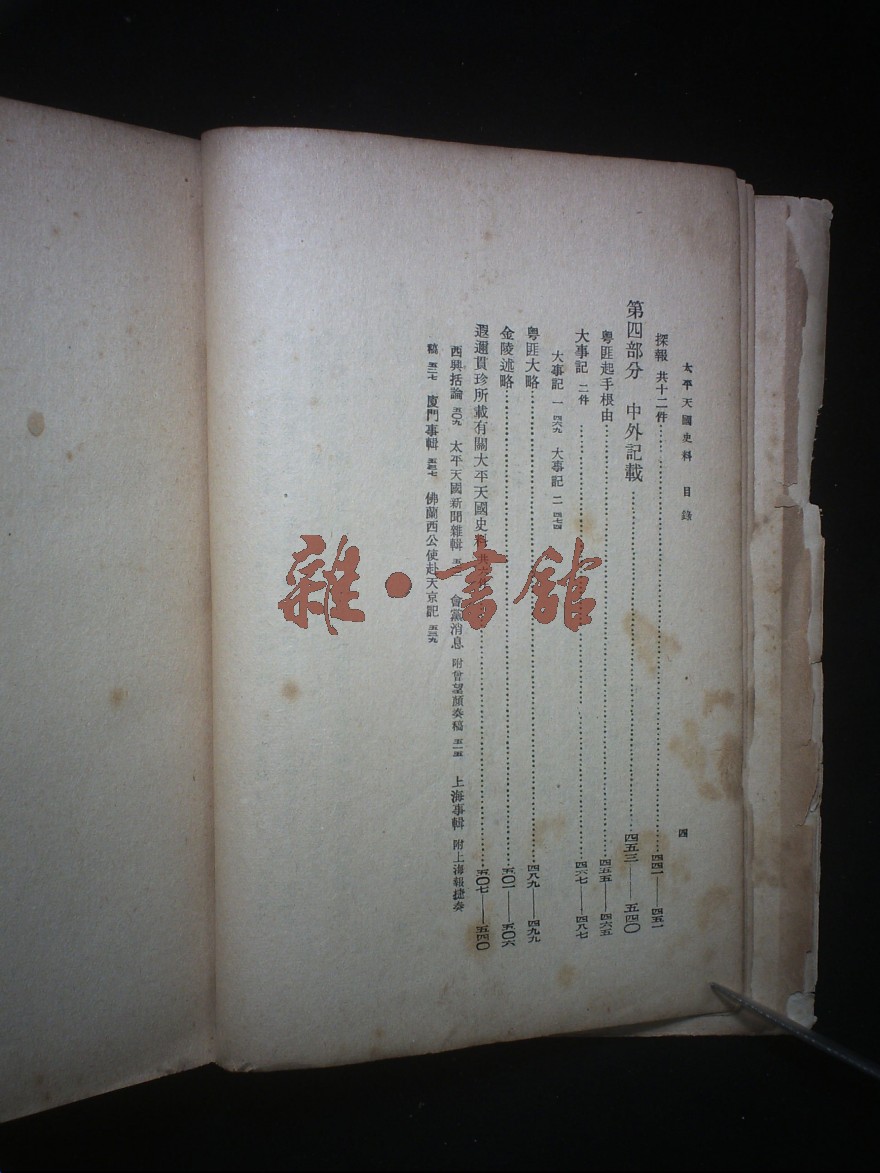 太平天國史料 目錄 四
探報 共十二件……四四一——四五一
第四部分 中外記載……四五三——五四〇
粤匪起手根由……四五五——四六五
大事記 二件……四六七——四八七
大事記 一 四六九 大事記 二 四七四
粤匪大略……四八九——四九九
金陵述略……五〇一——五〇六
遐邇貫珍所載有關太平天國史料 共六件……五〇七——五四〇
西興括論 五〇九 太平天國新聞雜輯 會黨消息 附曾望顏奏稿 五一五 上海事輯 附上海報捷奏
稿 五二七 廈門事輯 五三七 佛蘭西公使赴天京記 五三九
雜·書館